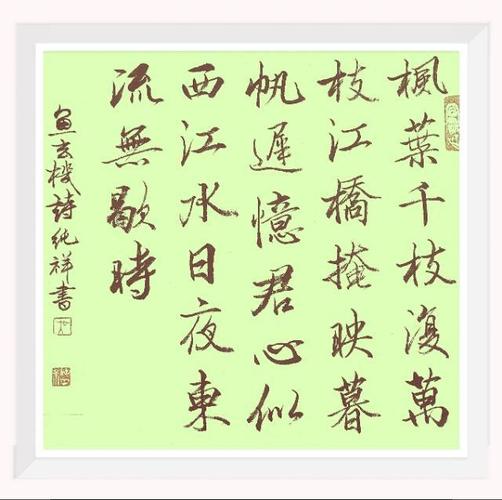 楓葉千枝復萬
枝江橋掩映暮
帆遲憶君心似
西江水日夜東
流無歇時
魚玄機詩純祥書